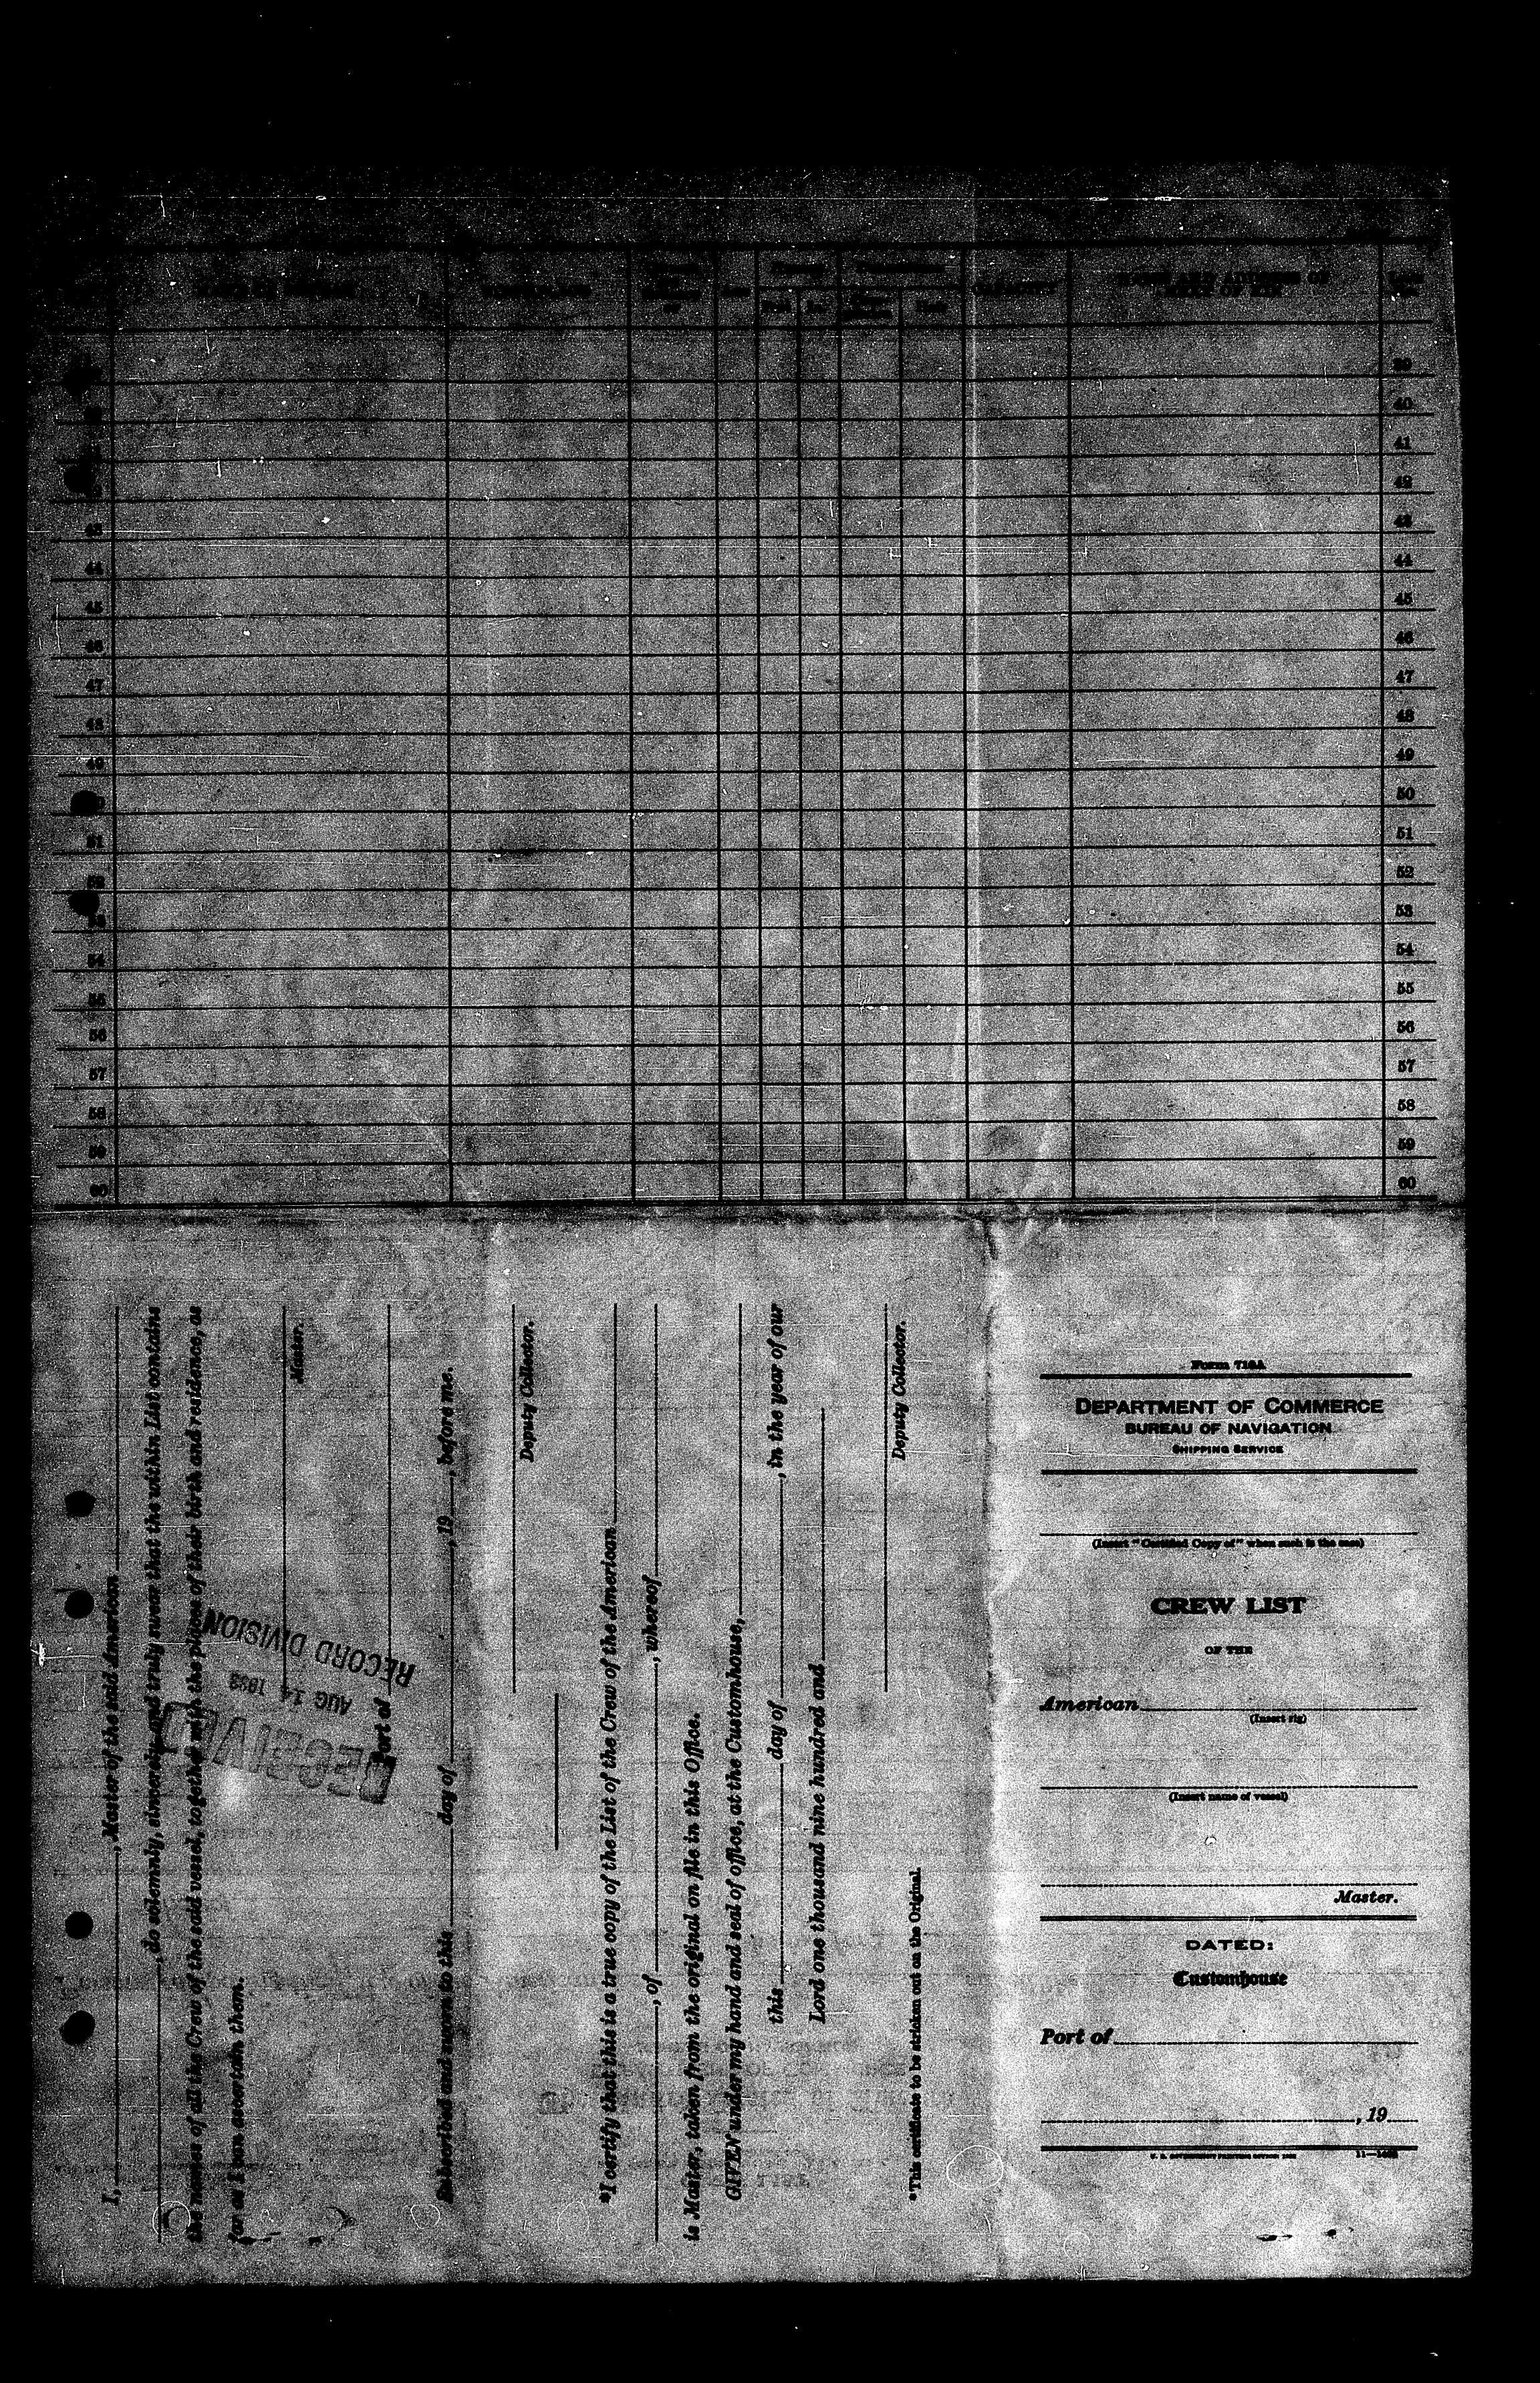 NAME AND ADDRESS OF
NEXT OF KIN
39
40
41
42
43 43
44 44
45 45
46 46
47 47
48 48
49 49
50
51 51
52 52
53 53
54 54
55 55
56 56
57 57
58 58
59 59
60 60
I, , Master of the said American
, do solemnly, sincerely and truly swear that the within List contains
the names of all the Crew of the said vessel, together with the places of their birth and residence, as
far as I can ascertain them.
Master.
Port of
Subscribed and sworn to this day of , 19 , before me.
Deputy Collector.
RECEIVED
AUG 14
RECORD DIVISION
*I certify that this is a true copy of the List of the Crew of the American
, of , whereof
is Master, taken from the original on file in this Office.
GIVEN under my hand and seal of office, at the Customhouse,
this day of , in the year of our
Lord one thousand nine hundred and
Deputy Collector.
*This certificate to be stricken out on the Original.
Form 710A
DEPARTMENT OF COMMERCE
BUREAU OF NAVIGATION
SHIPPING SERVICE
(Insert "Certified Copy of" when such is the case)
CREW LIST
OF THE
American
(Insert rig)
(Insert name of vessel)
Master.
DATED:
Customhouse
Port of
, 19
U. S. GOVERNMENT PRINTING OFFICE